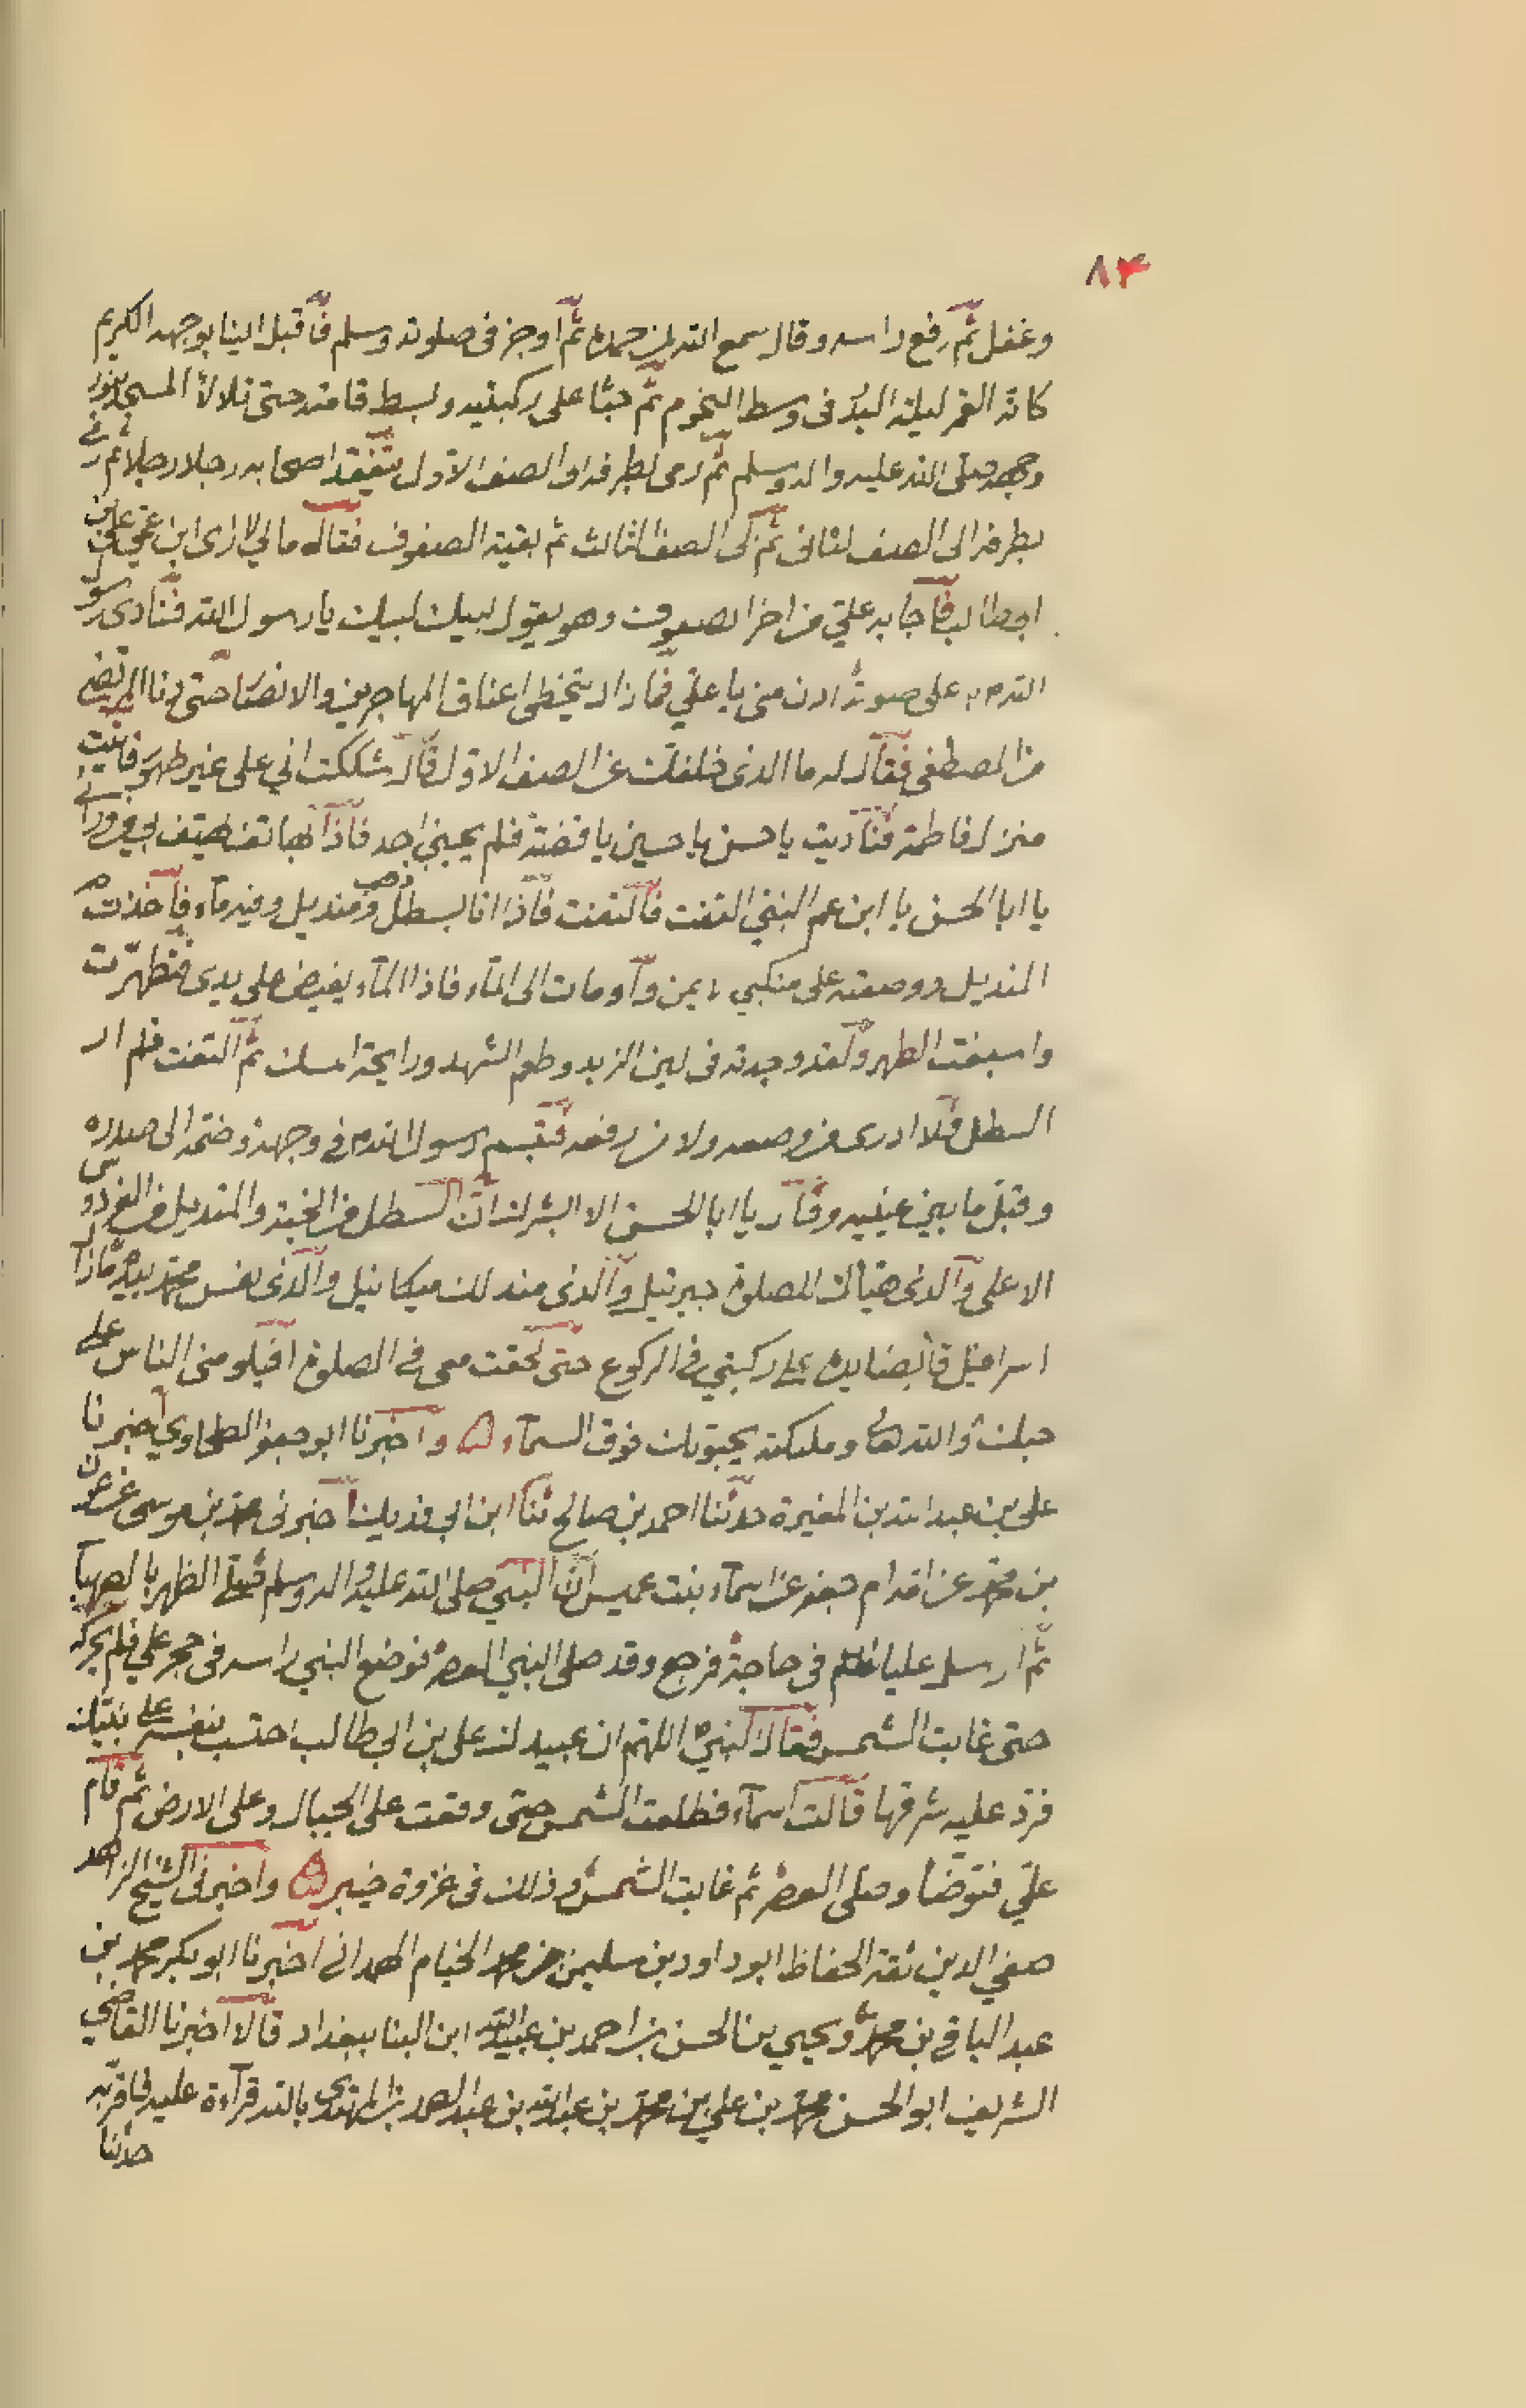 ٨٣
وغفل ثم رفع راسه وقال سمع الله لمن حمده ثم اوجز فى صلوته وسلم فاقبل الينا بوجهه الكريم
كانه القمر ليلة البدر فى وسط النجوم ثم جثا على ركبتيه وبسط قامته حتى تلالا المسجد بنور
وجهه صلى الله عليه واله وسلم ثم رمى بطرفه الى الصف الاول يتفقد اصحابه رجلا رجلا ثم رمى
بطرفه الى الصف الثانى ثم الى الصف الثالث ثم بقية الصفوف فقال ما لي لا ارى ابن عمي على بن
ابيطالب فاجابه علي من اخر الصفوف وهو يقول لبيك لبيك يا رسول الله فنادى رسول
الله م باعلى صوته ادن مني يا علي فما زال يتخطى اعناق المهاجرين والانصار حتى دنا المرتضى
من المصطفى فقال له ما الذى خلفك عن الصف الاول قال شككت اني على غير طهور فاتيت
منزل فاطمة فناديت يا حسن يا حسين يا فضة فلم يجبني احد فاذا بهاتف يهتف بي من ورائي
يا ابا الحسن يا ابن عم النبي التفت فالتفت فاذا انا بسطل ذهب ومنديل وفيه ماء فاخذت
المنديل ووضعته على منكبي الايمن واومات الى الماء فاذا الماء يفيض على يدى فتطهرت
واسبغت الطهر ولقد وجدته فى لين الزبد وطعم الشهد ورايحة المسك ثم التفت فلم ار
السطل فلا ادرى من وضعه ولا من رفعه فتبسم رسول الله م في وجهه وضمه الى صدره
وقبل ما بين عينيه وقال يا ابا الحسن الا ابشرك ان السطل من الجنة والمنديل من الفردوس
الاعلى والذى هيأك للصلوة جبرئيل والذى مندلك ميكائيل والذى نفس محمد بيده ما زال
اسرافيل قابضا يده على ركبتي في الركوع حتى لحقت معى في الصلوة افيلومني الناس على
حبك والله تعالى وملئكته يحبونك فوق السماء واخبرنا ابو جعفر الطحاوي اخبرنا
على بن عبد الله بن المغيرة حدثنا احمد بن صالح ثنا ابن ابي فديك اخبرنى محمد بن موسى عن عون
بن محمد عن امه ام جعفر عن اسماء بنت عميس ان النبي صلى الله عليه واله وسلم صلى الظهر بالصهباء
ثم ارسل عليا فى حاجة فرجع وقد صلى النبي العصر فوضع النبي راسه فى حجر علي فلم يحركه
حتى غابت الشمس فقال النبي اللهم ان عبيدك على بن ابي طالب احتبس بنفسه على نبيك
فرد عليه شرقها قالت اسماء فطلعت الشمس حتى وقعت على الجبال وعلى الارض ثم قام
علي فتوضا وصلى العصر ثم غابت الشمس وذلك فى غزوة خيبر واخبرنى الشيخ الزاهد
صفي الدين ثقة الحفاظ ابو داود بن سليمن بن محمد الخيام الهمدانى اخبرنا ابو بكر محمد بن
عبد الباقي بن محمد ويحيى بن الحسن بن احمد بن عبد الله ابن البنا ببغداد قالا اخبرنا القاضي
الشريف ابو الحسن محمد بن علي بن محمد بن عبيد الله بن عبد الصمد بن المهتدى بالله قراءة عليه فاقر به
حدثنا